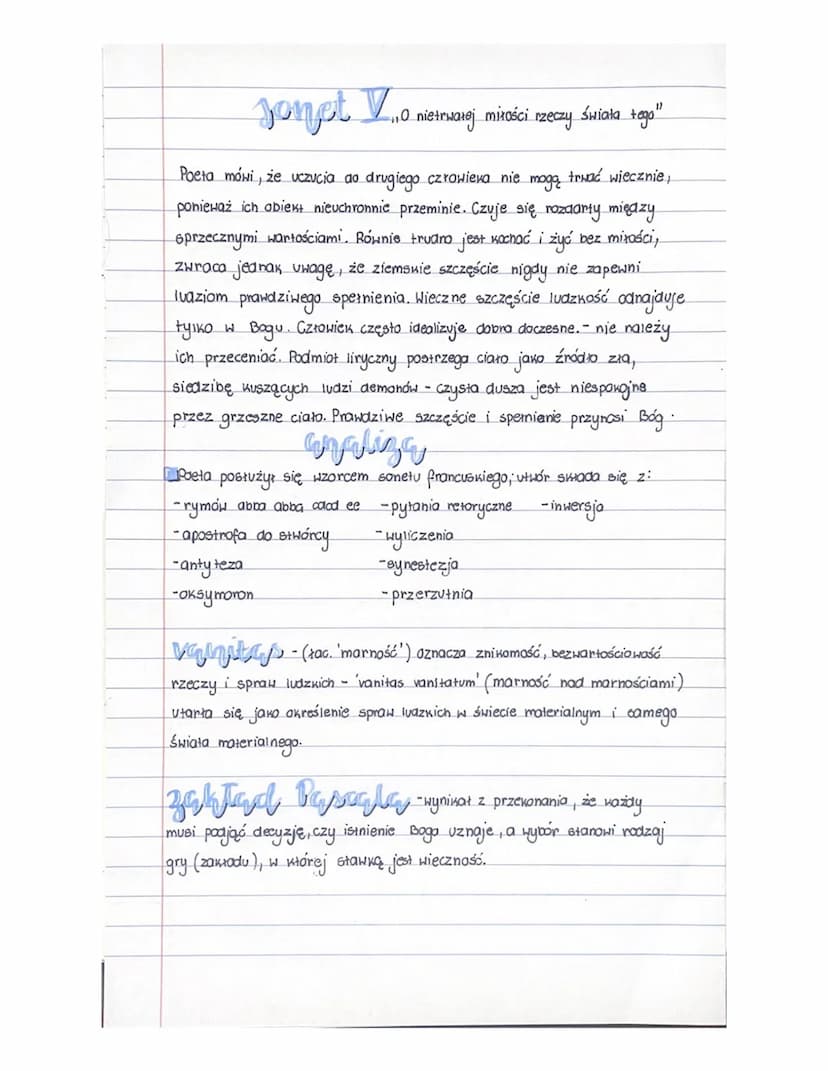 Sonet V „O nietrwałej miłości rzeczy świata tego"
Poeta mówi, że uczucia do drugiego człowieka nie mogą trwać wiecznie,
ponieważ ich obiekt nieuchronnie przeminie. Czuje się rozdarty między
sprzecznymi wartościami. Równie trudno jest kochać i żyć bez miłości,
zwraca jednak uwagę, że ziemskie szczęście nigdy nie zapewni
ludziom prawdziwego spełnienia. Wieczne szczęście ludzkość odnajduje
tylko w Bogu. Człowiek często idealizuje dobra doczesne. - nie należy
ich przeceniać. Podmiot liryczny postrzega ciało jako źródło zła,
siedzibę kuszących ludzi demonów - czysta dusza jest niespokojna
przez grzeszne ciało. Prawdziwe szczęście i spełnienie przynosi Bóg.
analiza
Poeta posłużył się wzorcem sonetu francuskiego; utwór składa się z:
- rymów abba abba cdcd ee - pytania retoryczne - inwersja
- apostrofa do stwórcy - wyliczenia
- antyteza - synestezja
- oksymoron - przerzutnia
vanitas - (łac. 'marność') oznacza znikomość, bezwartościowość
rzeczy i spraw ludzkich - 'vanitas vanitatum' (marność nad marnościami)
utarło się jako określenie spraw ludzkich w świecie materialnym i samego
świata materialnego.
zakład Pascala - wynikał z przekonania, że każdy
musi podjąć decyzję, czy istnienie Boga uznaje, a wybór stanowi rodzaj
gry (zakładu), w której stawką jest wieczność.